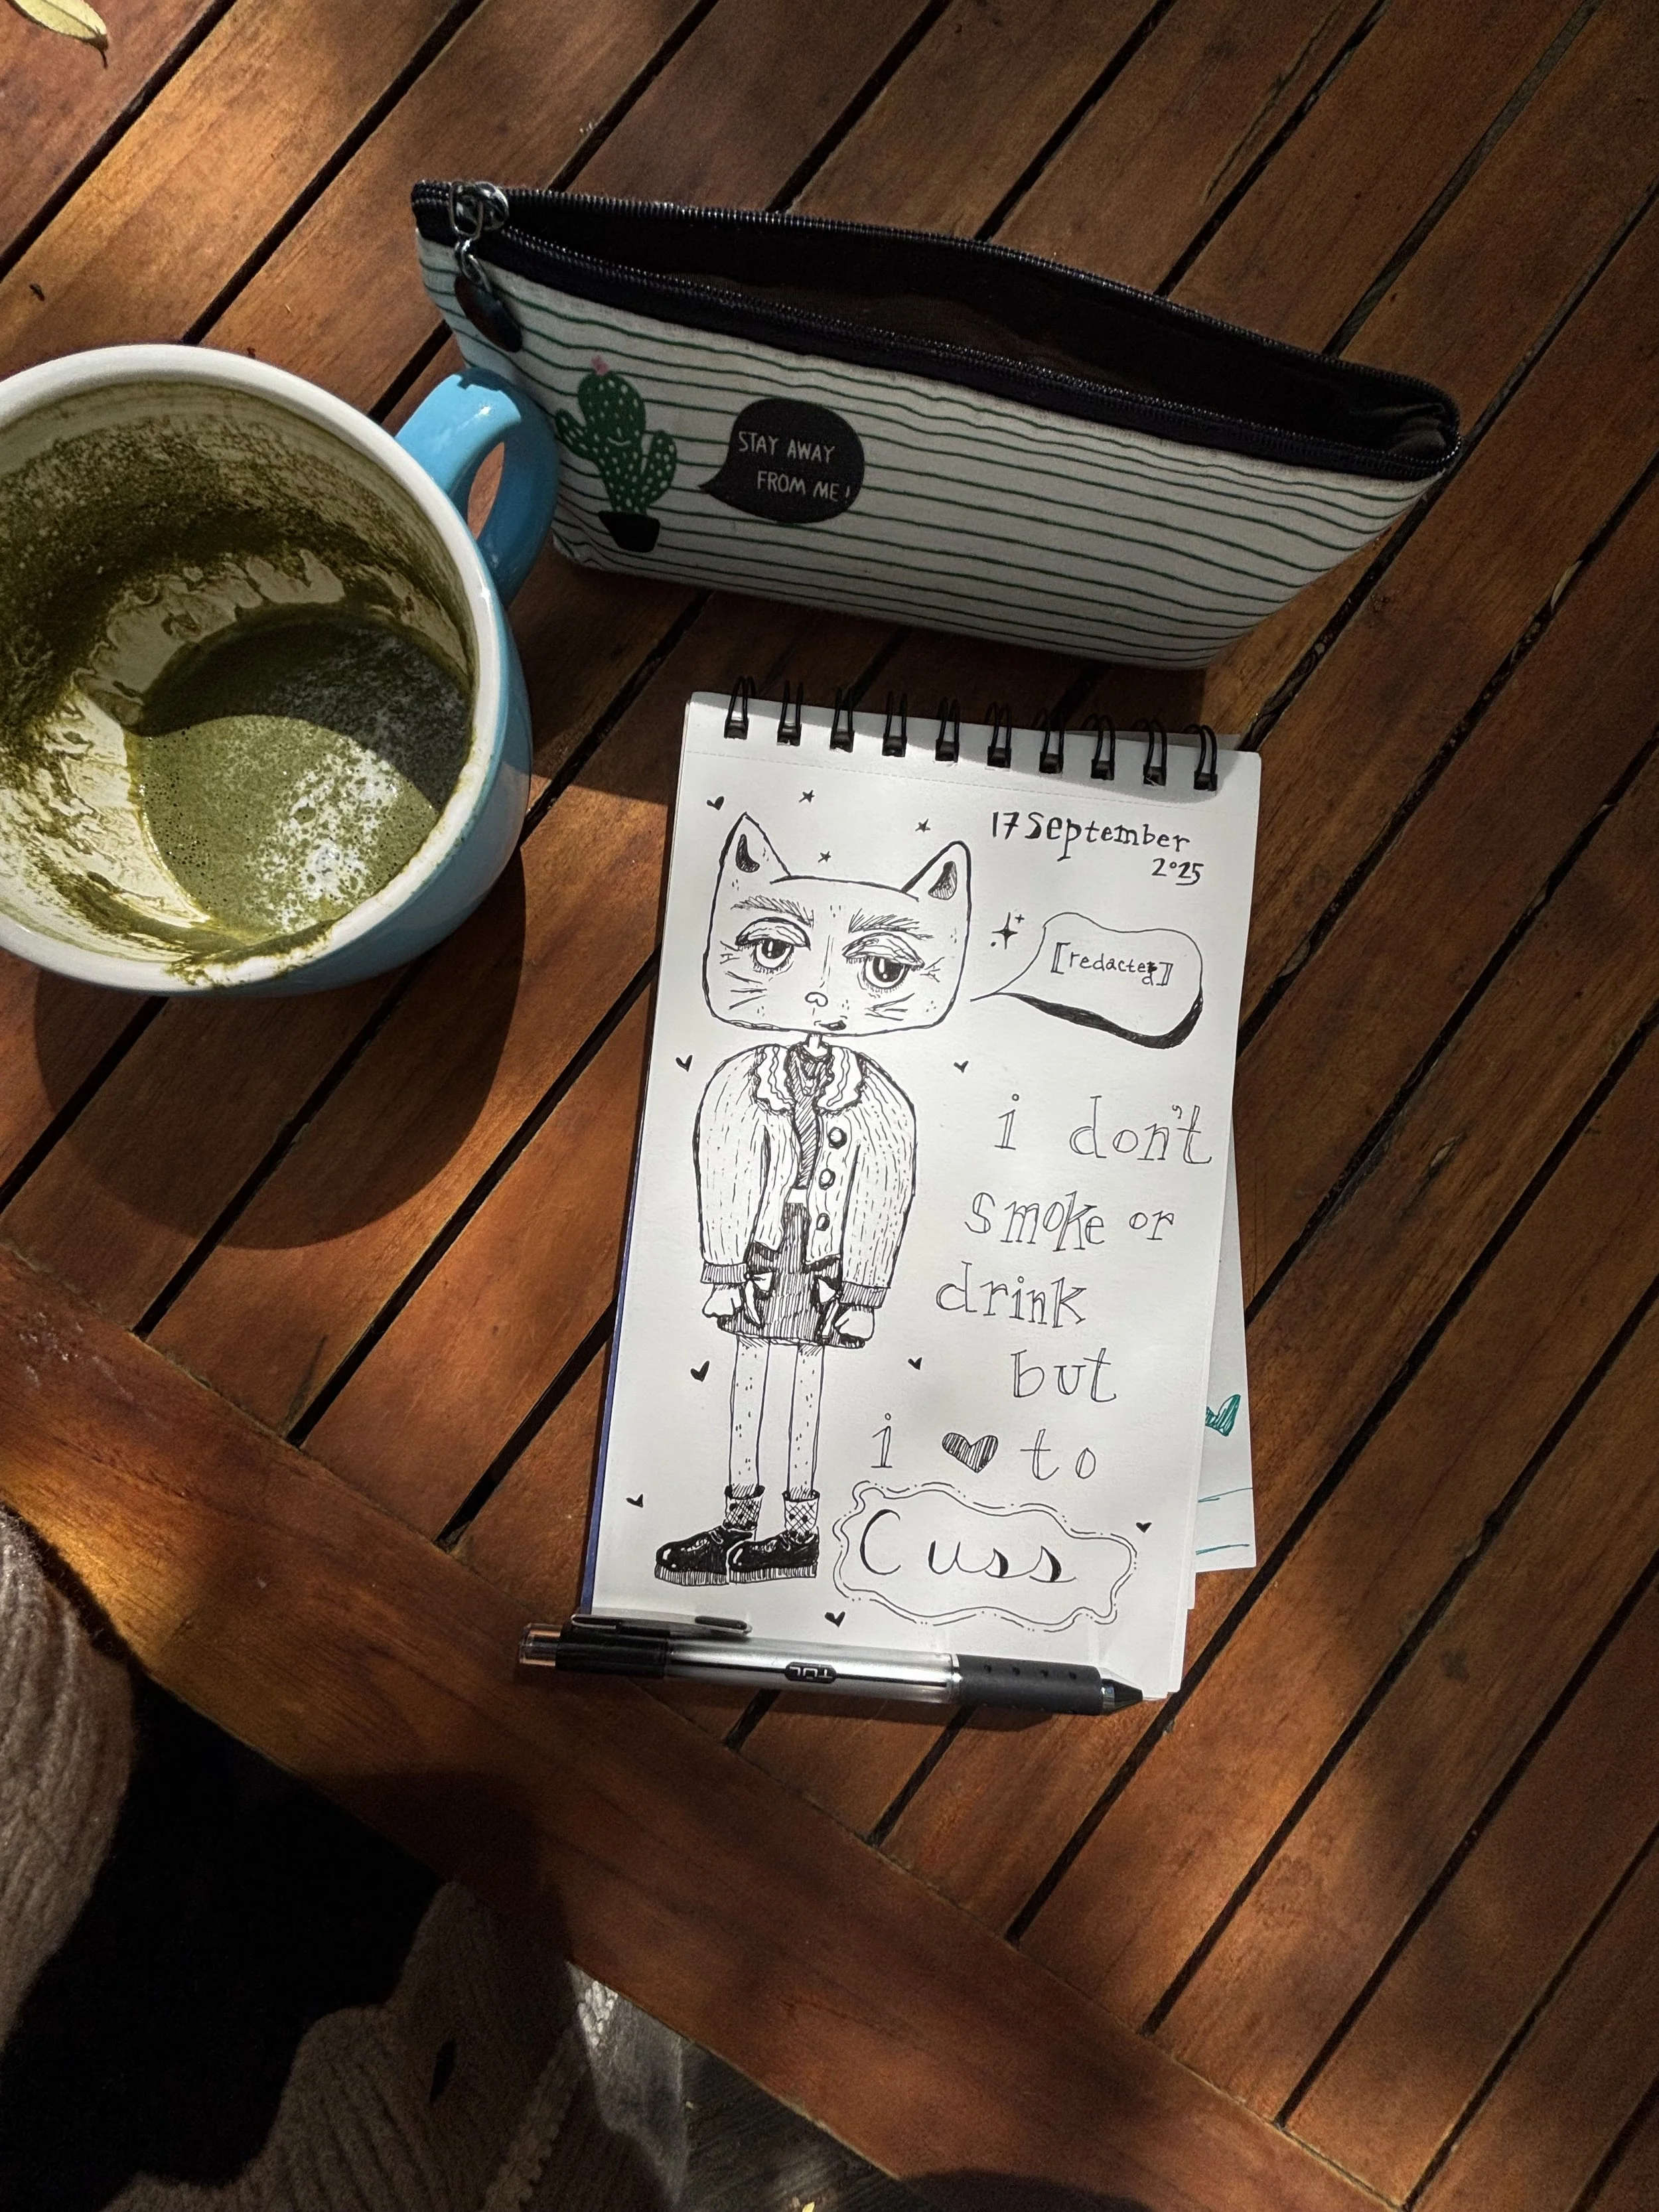 STAY AWAY
FROM ME!
17 September
2025
[redacted]
i don't
smoke or
drink
but
i ♥ to
Cuss
TUL